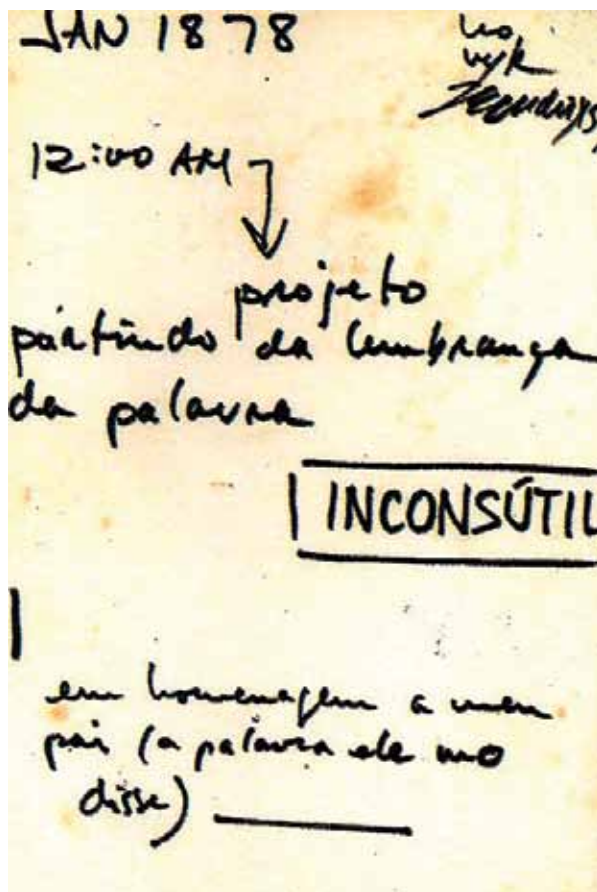 JAN 1878
ho,
nyk
12:00 AM
projeto
partindo da lembrança
da palavra
INCONSÚTIL
em homenagem a meu
pai (a palavra ele mo
disse)